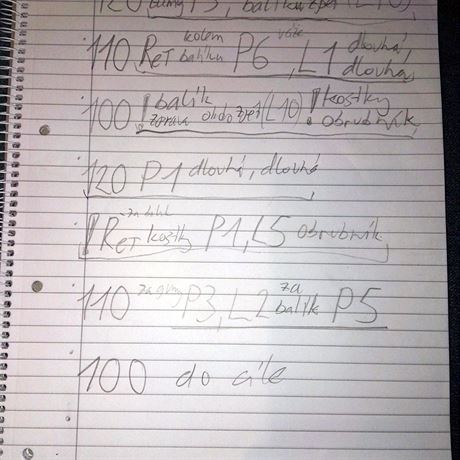 120 gumy P3, balík zpět (L10)
110 Ret kolem balíku P6 vlože, L1 dlouhá, dlouhá
100 ! balík zprava obdo zpět (L10) ! kostky obrubník,
120 P1 dlouhá, dlouhá
! Ret za balík kostky P1, L5 obrubník,
110 za gumy P3, L2 za balík P5
100 do cíle